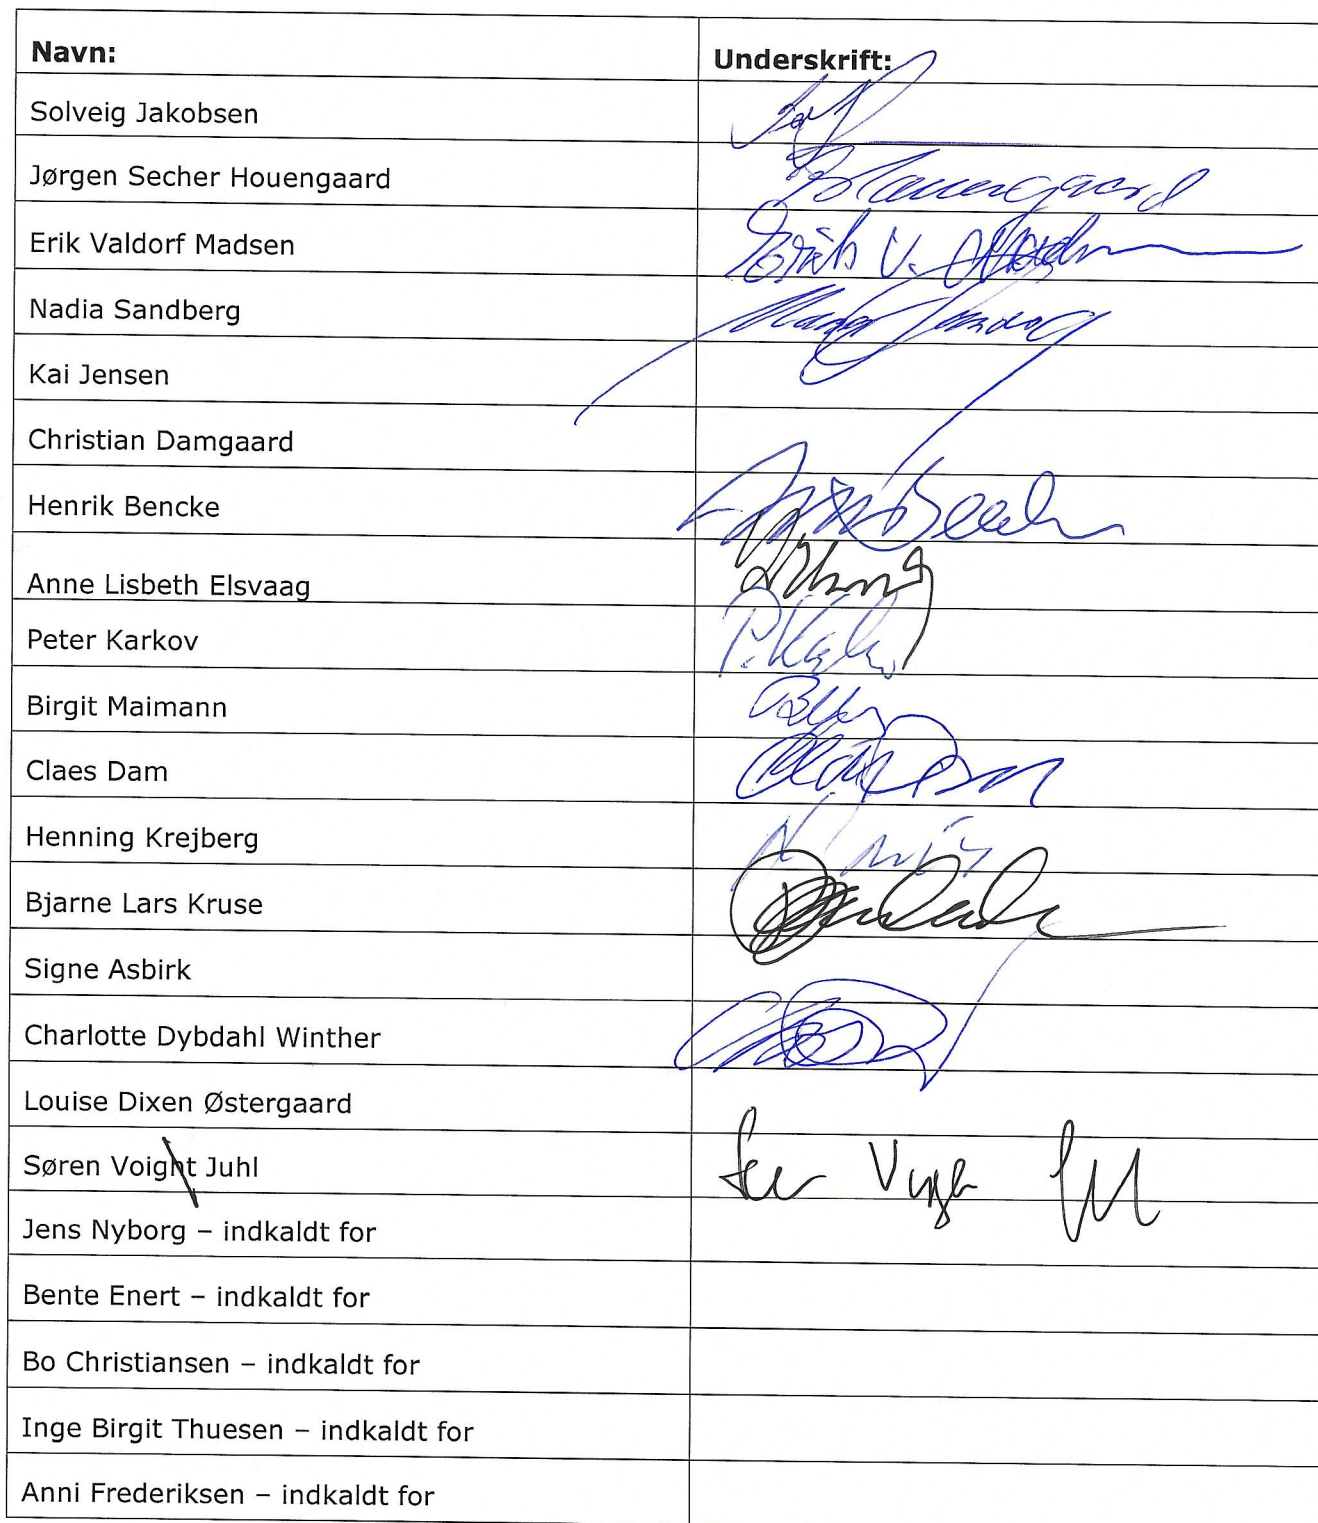 Navn: Underskrift:
Solveig Jakobsen
Jørgen Secher Houengaard Houengaard
Erik Valdorf Madsen Erik V. Madsen
Nadia Sandberg
Kai Jensen
Christian Damgaard
Henrik Bencke
Anne Lisbeth Elsvaag
Peter Karkov
Birgit Maimann
Claes Dam
Henning Krejberg
Bjarne Lars Kruse
Signe Asbirk
Charlotte Dybdahl Winther
Louise Dixen Østergaard
Søren Voight Juhl
Jens Nyborg – indkaldt for
Bente Enert – indkaldt for
Bo Christiansen – indkaldt for
Inge Birgit Thuesen – indkaldt for
Anni Frederiksen – indkaldt for